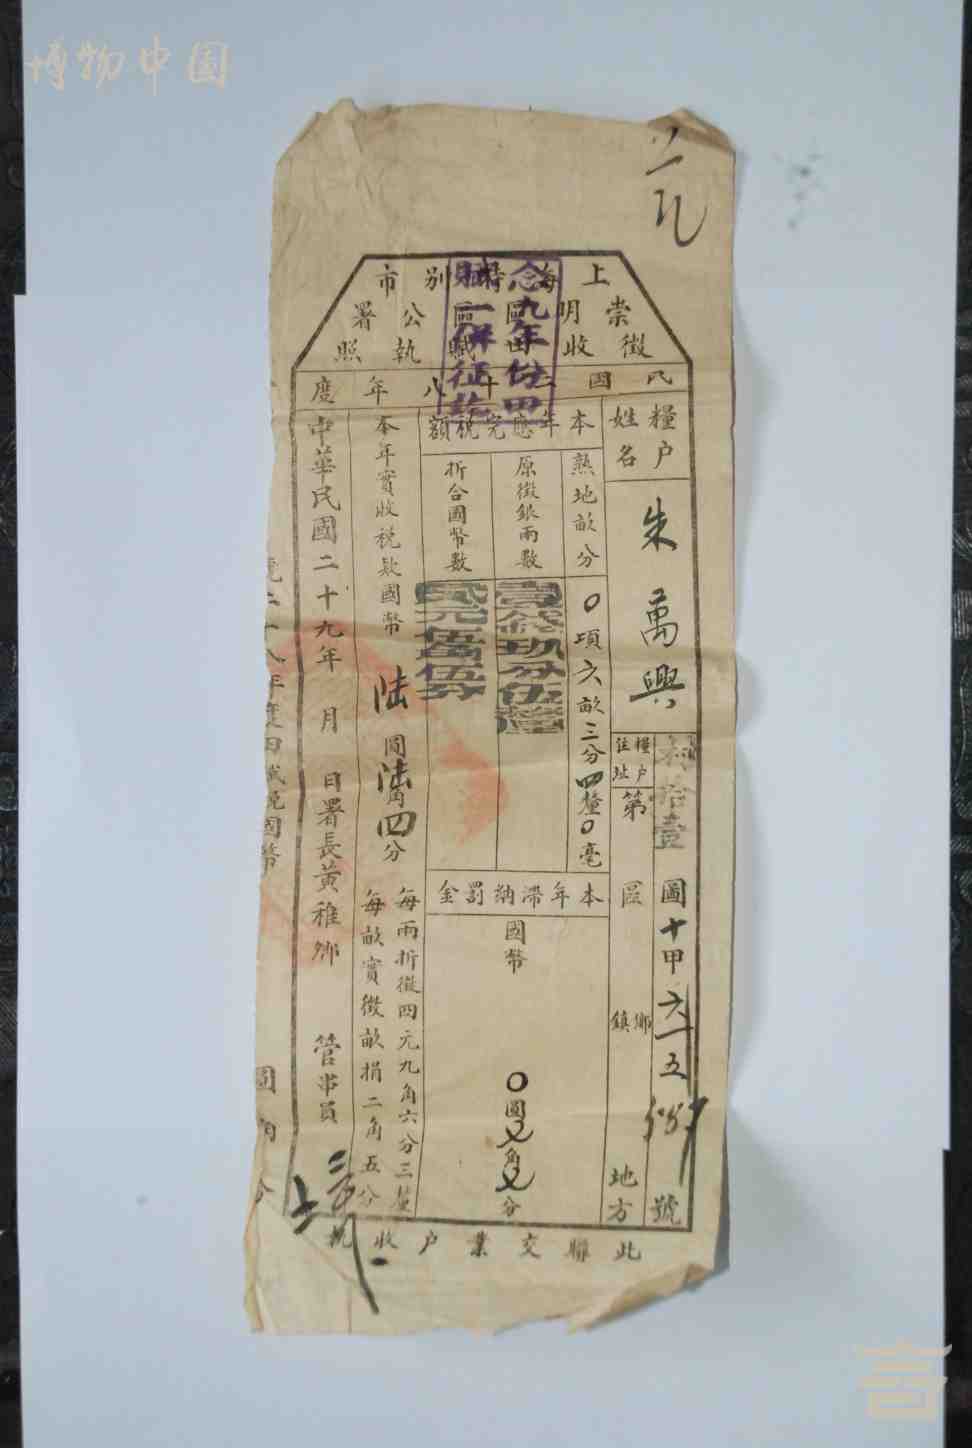 博物中国
上海特別市
崇明區區公署
徵收田賦執照
念九年份田
賦一併征
民國二十八年度
糧户姓名
朱萬興
糧户住址
拾壹圖十甲六一五
號
第 區 鄉鎮 地方
本年應完税額
熟地畝分
〇項六畝三分四釐〇毫
原徵銀兩數
壹錢玖分伍釐
折合國幣數
貳元伍角伍分
本年滯納罰金
國幣
〇圓 角 分
本年實收税款國幣
陸圓陆角四分
每兩折徵四元九角六分三釐
每畝實徵畝捐二角五分
中華民國二十九年 月 日署長黃稚鄉
管串員
號二十八年度田賦税國幣
圓 角 分
此聯交業户收執